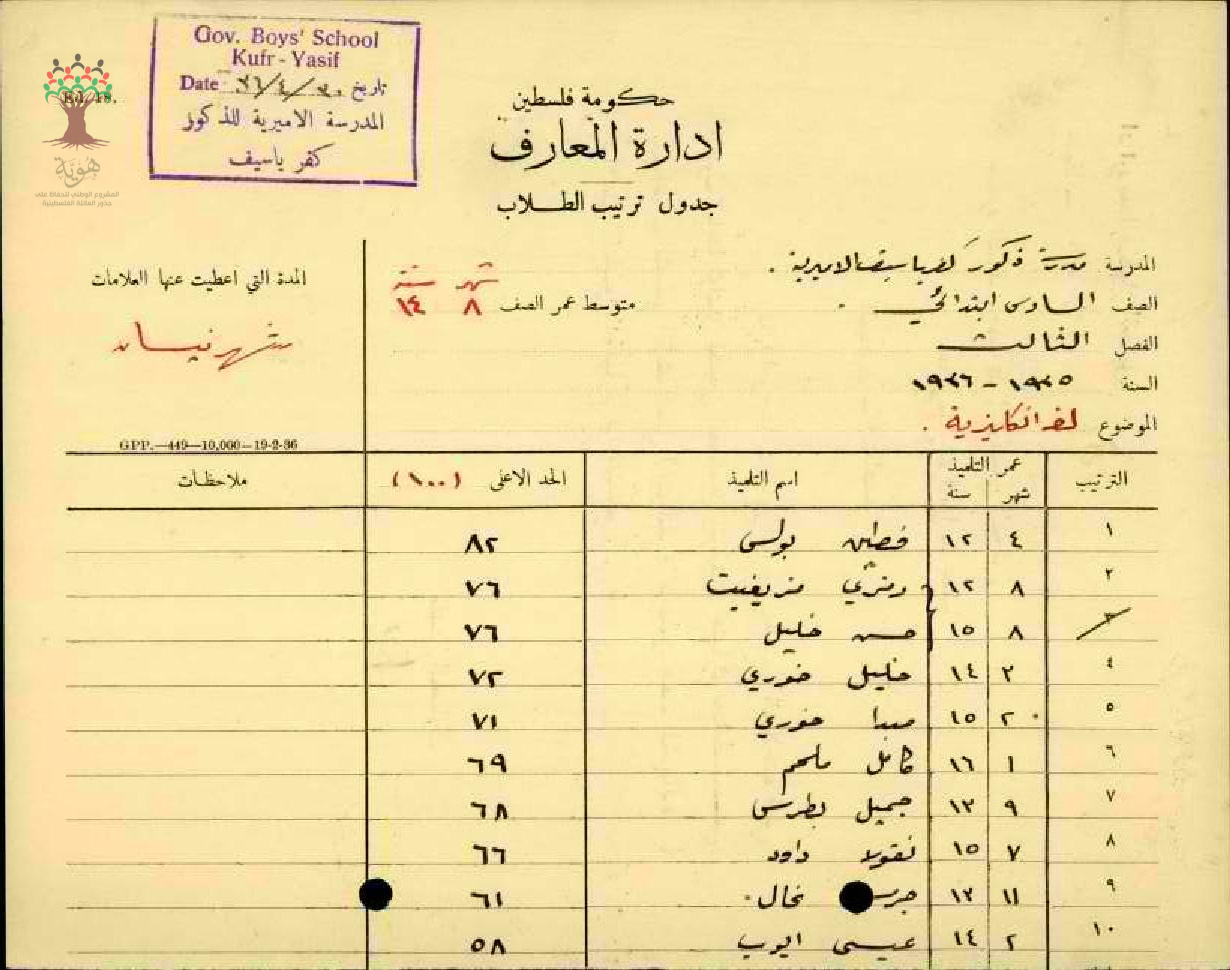 Gov. Boys' School
Kufr-Yasif
Date ٣٦/٤/٣٠ تاريخ
المدرسة الاميرية للذكور
كفر ياسيف
Ed. 18.
هُوِيَّة
المشروع الوطني للحفاظ على
جذور العائلة الفلسطينية
حكومة فلسطين
ادارة المعارف
جدول ترتيب الطلاب
المدرسة مدرسة ذكور كفرياسيف الاميرية .
الصف السادس ابتدائي .
متوسط عمر الصف ٨ شهر ١٤ سنة
الفصل الثالث
السنة ١٩٣٥ - ١٩٣٦
الموضوع لغة انكليزية .
المدة التي اعطيت عنها العلامات
شهر نيسان
GPP.—449—10,000—19-2-36
الترتيب عمر التلميذ اسم التلميذ الحد الاعلى (١٠٠) ملاحظات
شهر سنة
١ ٤ ١٢ بولس ٨٢
٢ ٨ ١٢ رمزي ٧٦
٣ ٨ ١٥ حسن خليل ٧٦
٤ ٣ ١٤ خليل خوري ٧٢
٥ ٢ ١٥ خوري ٧١
٦ ١ ١٦ كامل ملحم ٦٩
٧ ٩ ١٣ جميل بطرس ٦٨
٨ ٧ ١٥ نقولا داود ٦٦
٩ ١١ ١٣ نخال ٦١
١٠ ٢ ١٤ عيسى ايوب ٥٨